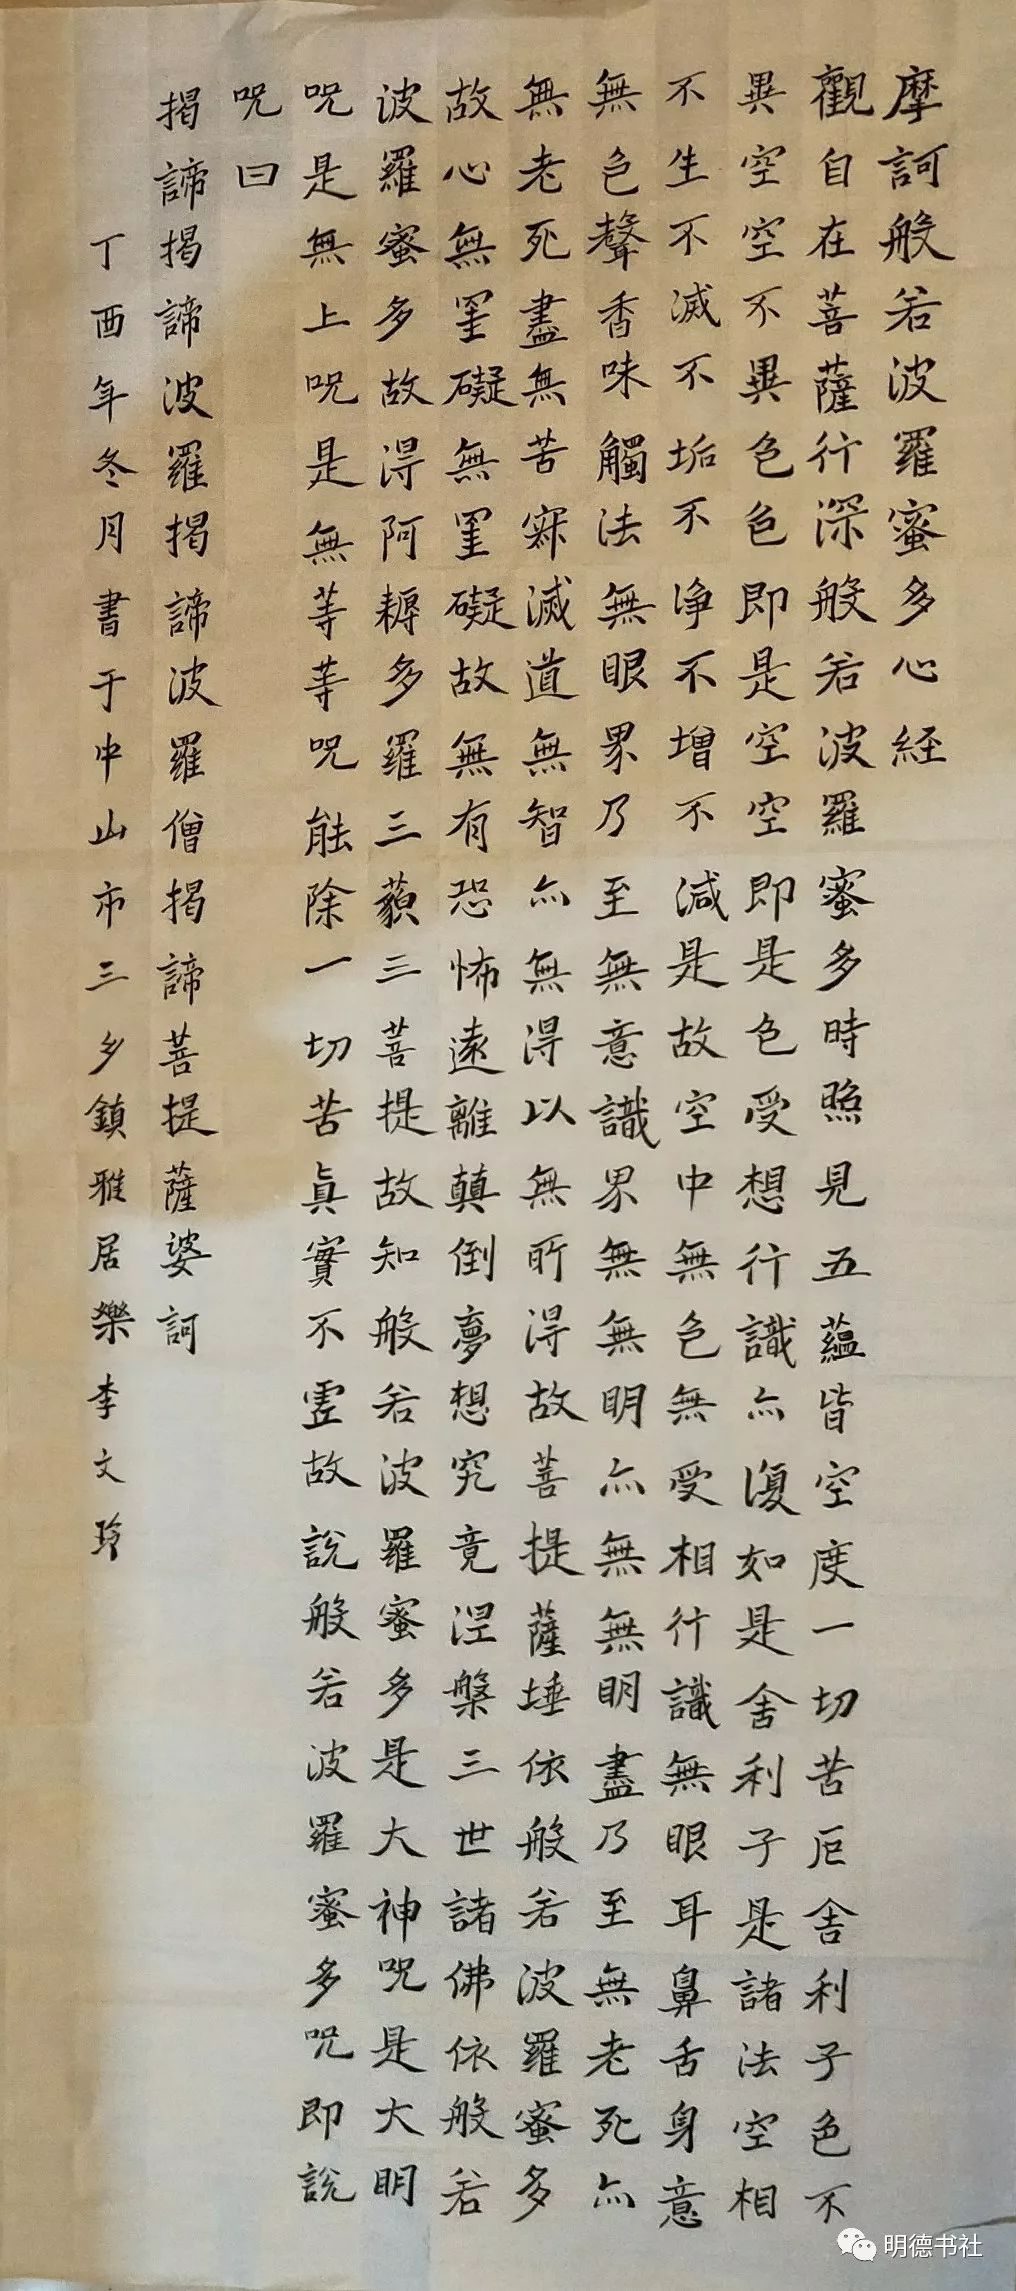 摩訶般若波羅蜜多心経
觀自在菩薩行深般若波羅蜜多時照見五蘊皆空度一切苦厄舍利子色不
異空空不異色色即是空空即是色受想行識亦復如是舍利子是諸法空相
不生不滅不垢不净不增不減是故空中無色無受相行識無眼耳鼻舌身意
無色聲香味觸法無眼界乃至無意識界無無明亦無無明盡乃至無老死亦
無老死盡無苦寂滅道無智亦無得以無所得故菩提薩埵依般若波羅蜜多
故心無罣礙無罣礙故無有恐怖遠離顛倒夢想究竟涅槃三世諸佛依般若
波羅蜜多故得阿耨多羅三藐三菩提故知般若波羅蜜多是大神咒是大明
咒是無上咒是無等等咒能除一切苦真實不虛故說般若波羅蜜多咒即說
咒曰
揭諦揭諦波羅揭諦波羅僧揭諦菩提薩婆訶
丁酉年冬月書于中山市三乡鎮雅居樂李文玲
明德书社